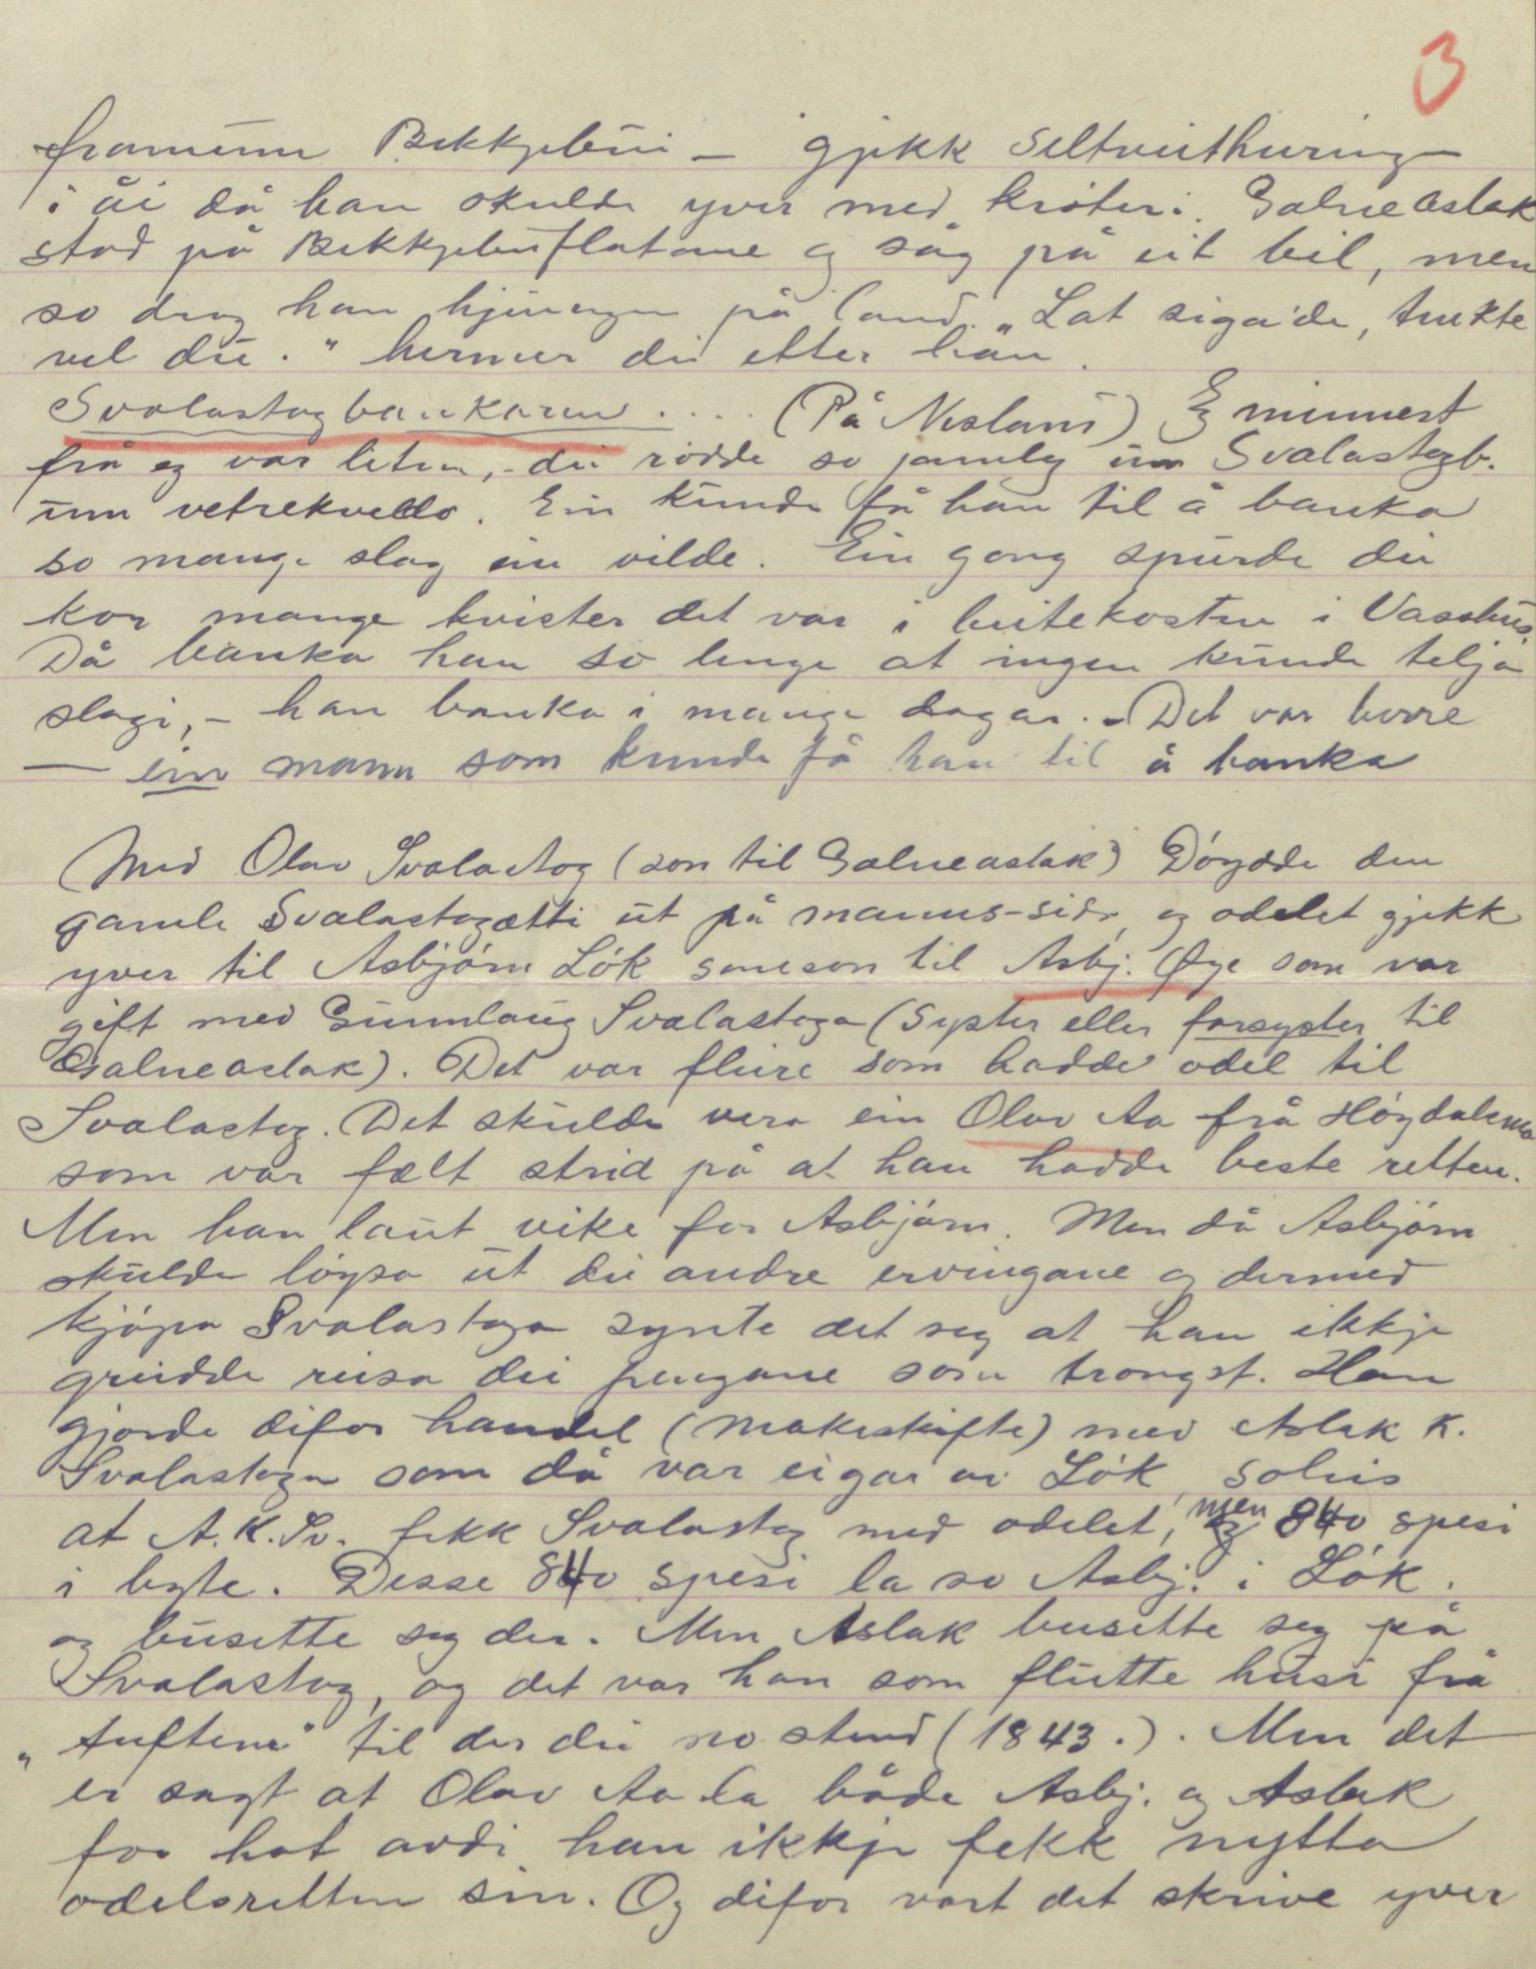 3
framunn Bekkjebúi — gjekk Seltveithuring
i åi då han skulde yver med krøter: Galneaslak
stod på Bekkjebúflatane og såg på eit bil, men
so drog han hjuringen på land. "Lat siga'de, tukte
vel du." hermer dei etter han.
Svalastogbankaren .... (På Neslandi) Eg minnest
frå eg var liten, - dei rødde so jamleg um Svalastogb.
um vetrekveldo. Ein kunde få han til å banka
so mange slag ein vilde. Ein gong spurde dei
kor mange kvister det var i beitekosten i Vasshus.
Då banka han so lenge at ingen kunde telja
slagi, - han banka i mange dagar. - Det var berre
— ein mann som kunde få han til å banka
Med Olav Svalastog (son til Galneaslak) Døydde den
gamle Svalastogætti ut på manns-sida, og odelet gjekk
yver til Asbjørn Løk soneson til Asbj. Øye som var
gift med Gunnlaug Svalastoga (Syster eller farsyster til
Galneaslak). Det var fleire som hadde odel til
Svalastog. Det skulde vera ein Olav Aa frå Høydalsmo
som var fælt strid på at han hadde beste retten.
Men han laut vike for Asbjørn. Men då Asbjørn
skulde løysa ut dei andre ervingane og dermed
kjøpa Svalastoga synte det seg at han ikkje
greidde reisa dei pengane som trongst. Han
gjorde difor handel (makeskifte) med Aslak K.
Svalastoga som då var eigar av Løk, soleis
at A.K.Sv. fekk Svalastog med odelet, men 840 spesi
i byte. Desse 840 spesi la so Asbj. i Løk.
og busette seg der. Men Aslak busette seg på
Svalastog, og det var han som flutte husi frå
"tuftene" til der dei no stend (1843.). Men det
er sagt at Olav Aa la både Asbj. og Aslak
for hat avdi han ikkje fekk nytta
odelsretten sin. Og difor vart det skrive yver